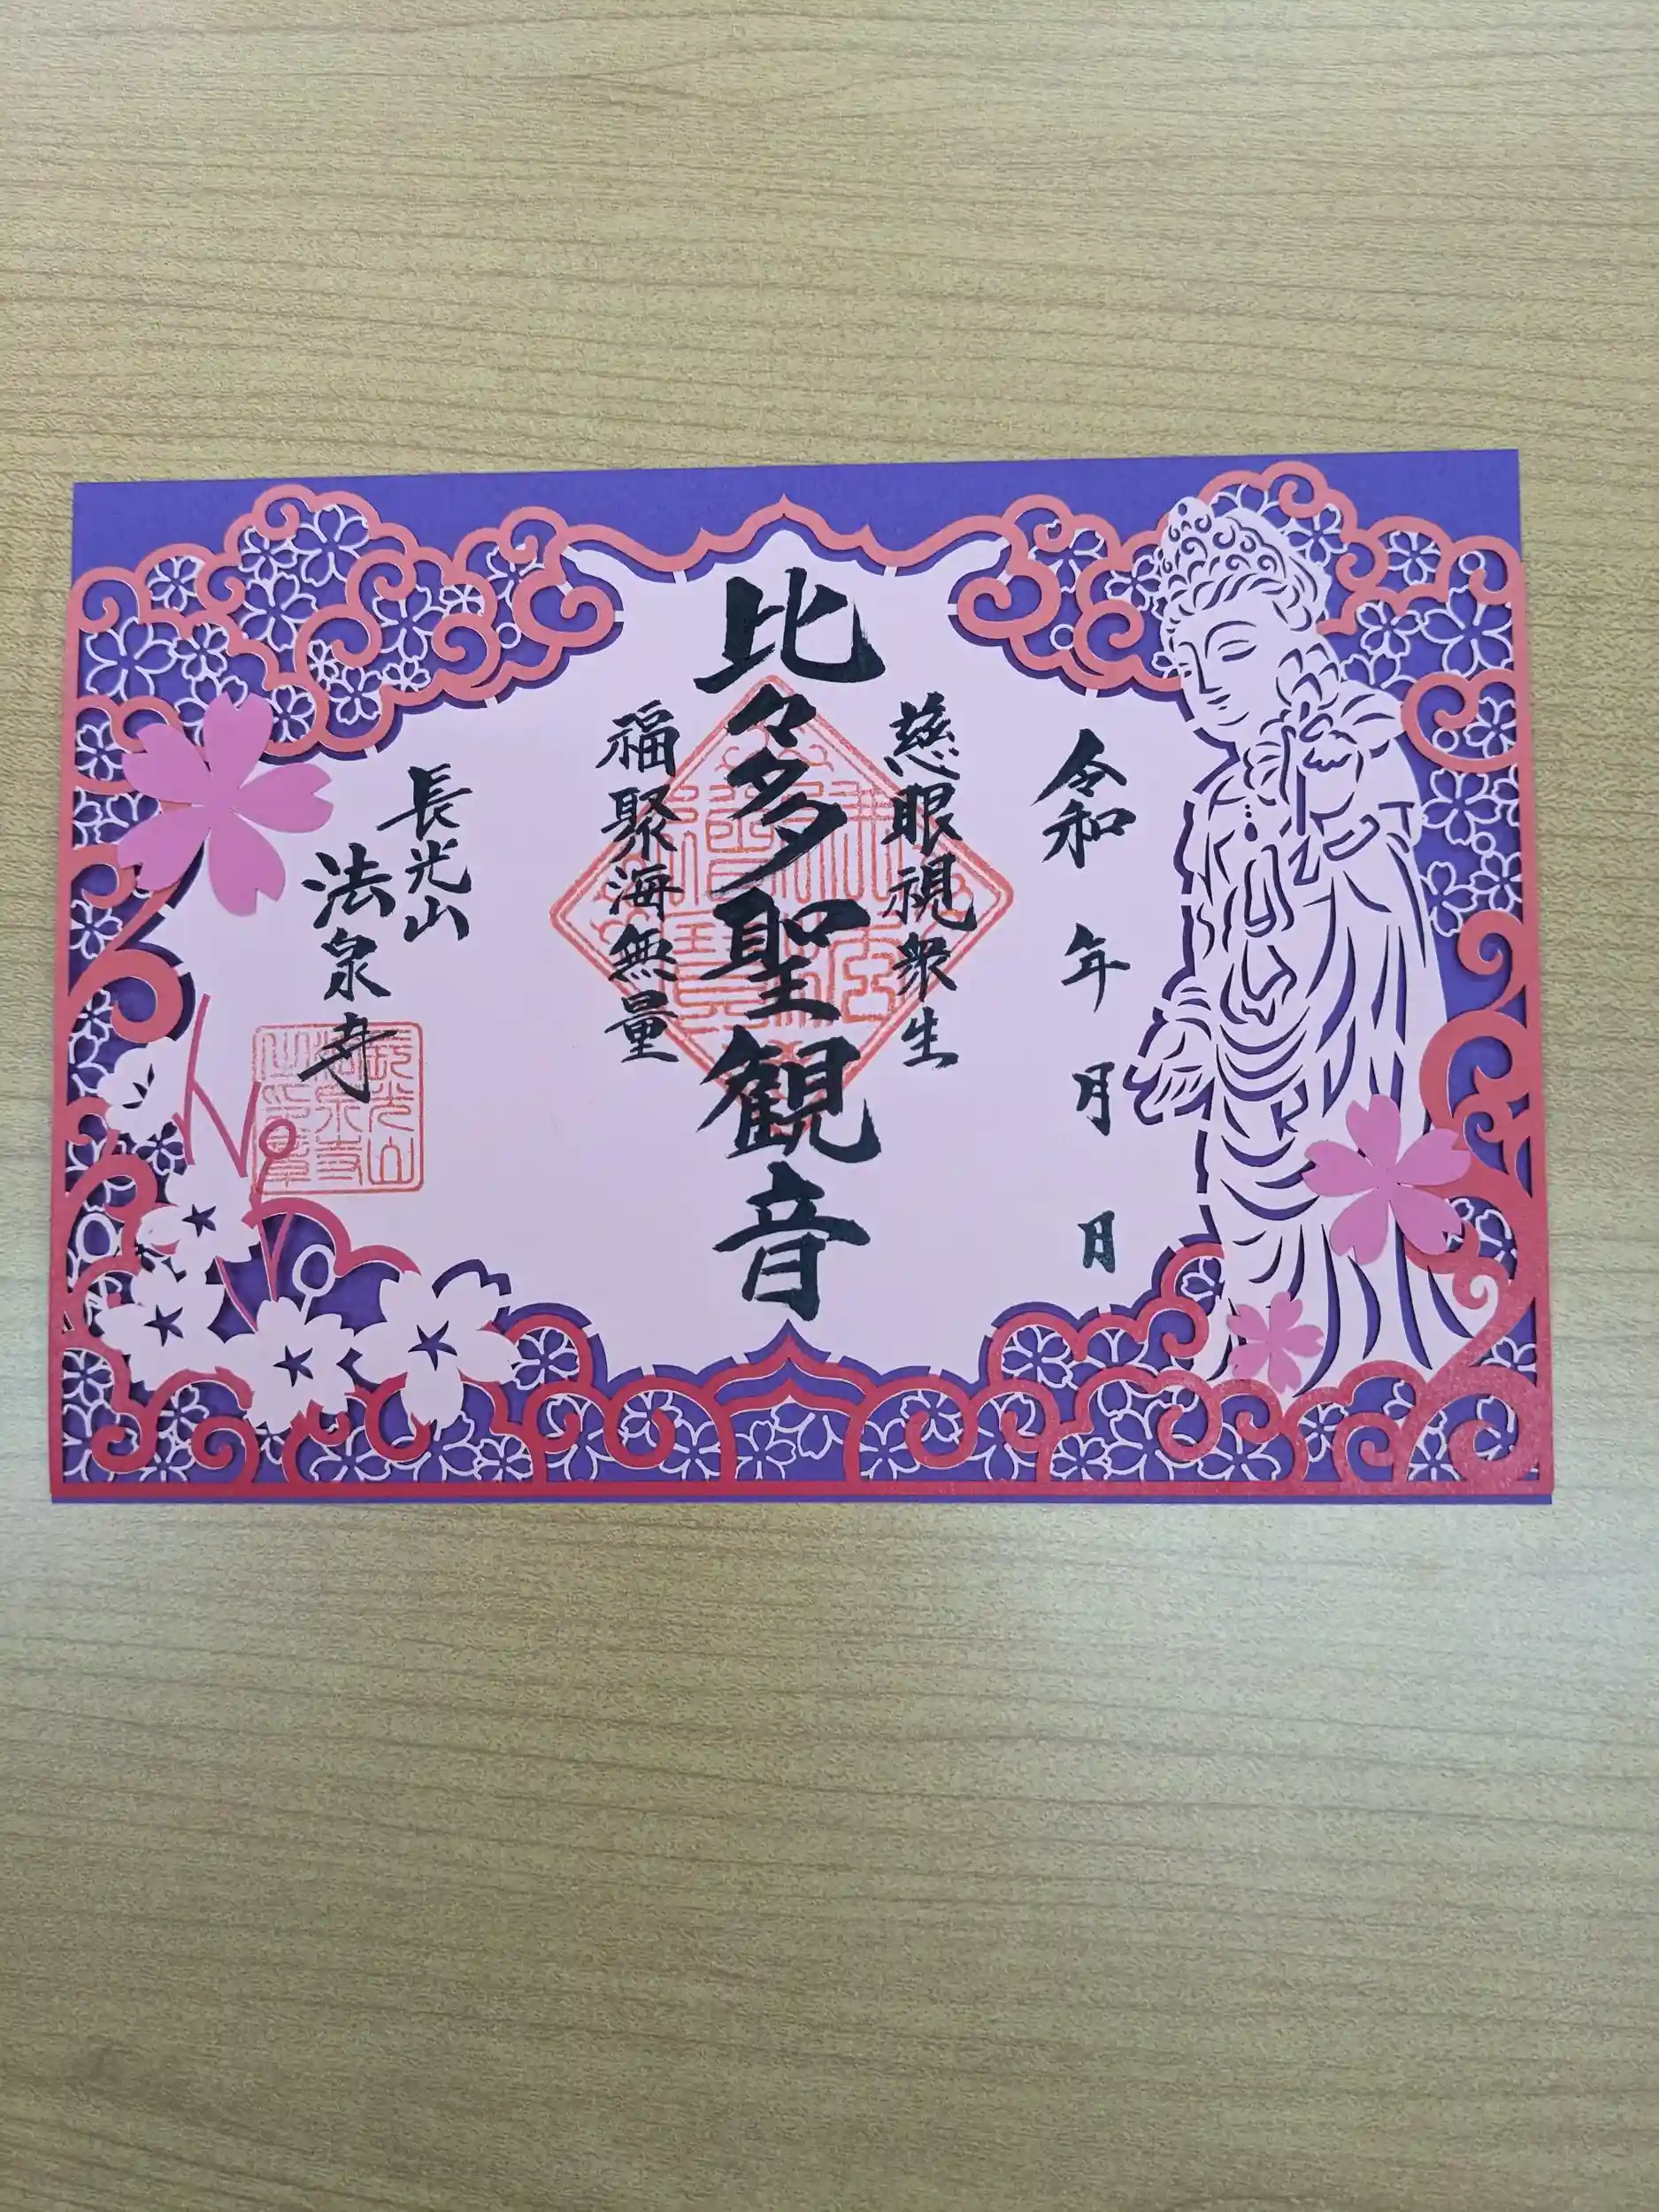 令和 年 月 日
慈眼視衆生
比々多聖観音
福聚海無量
長光山
法泉寺